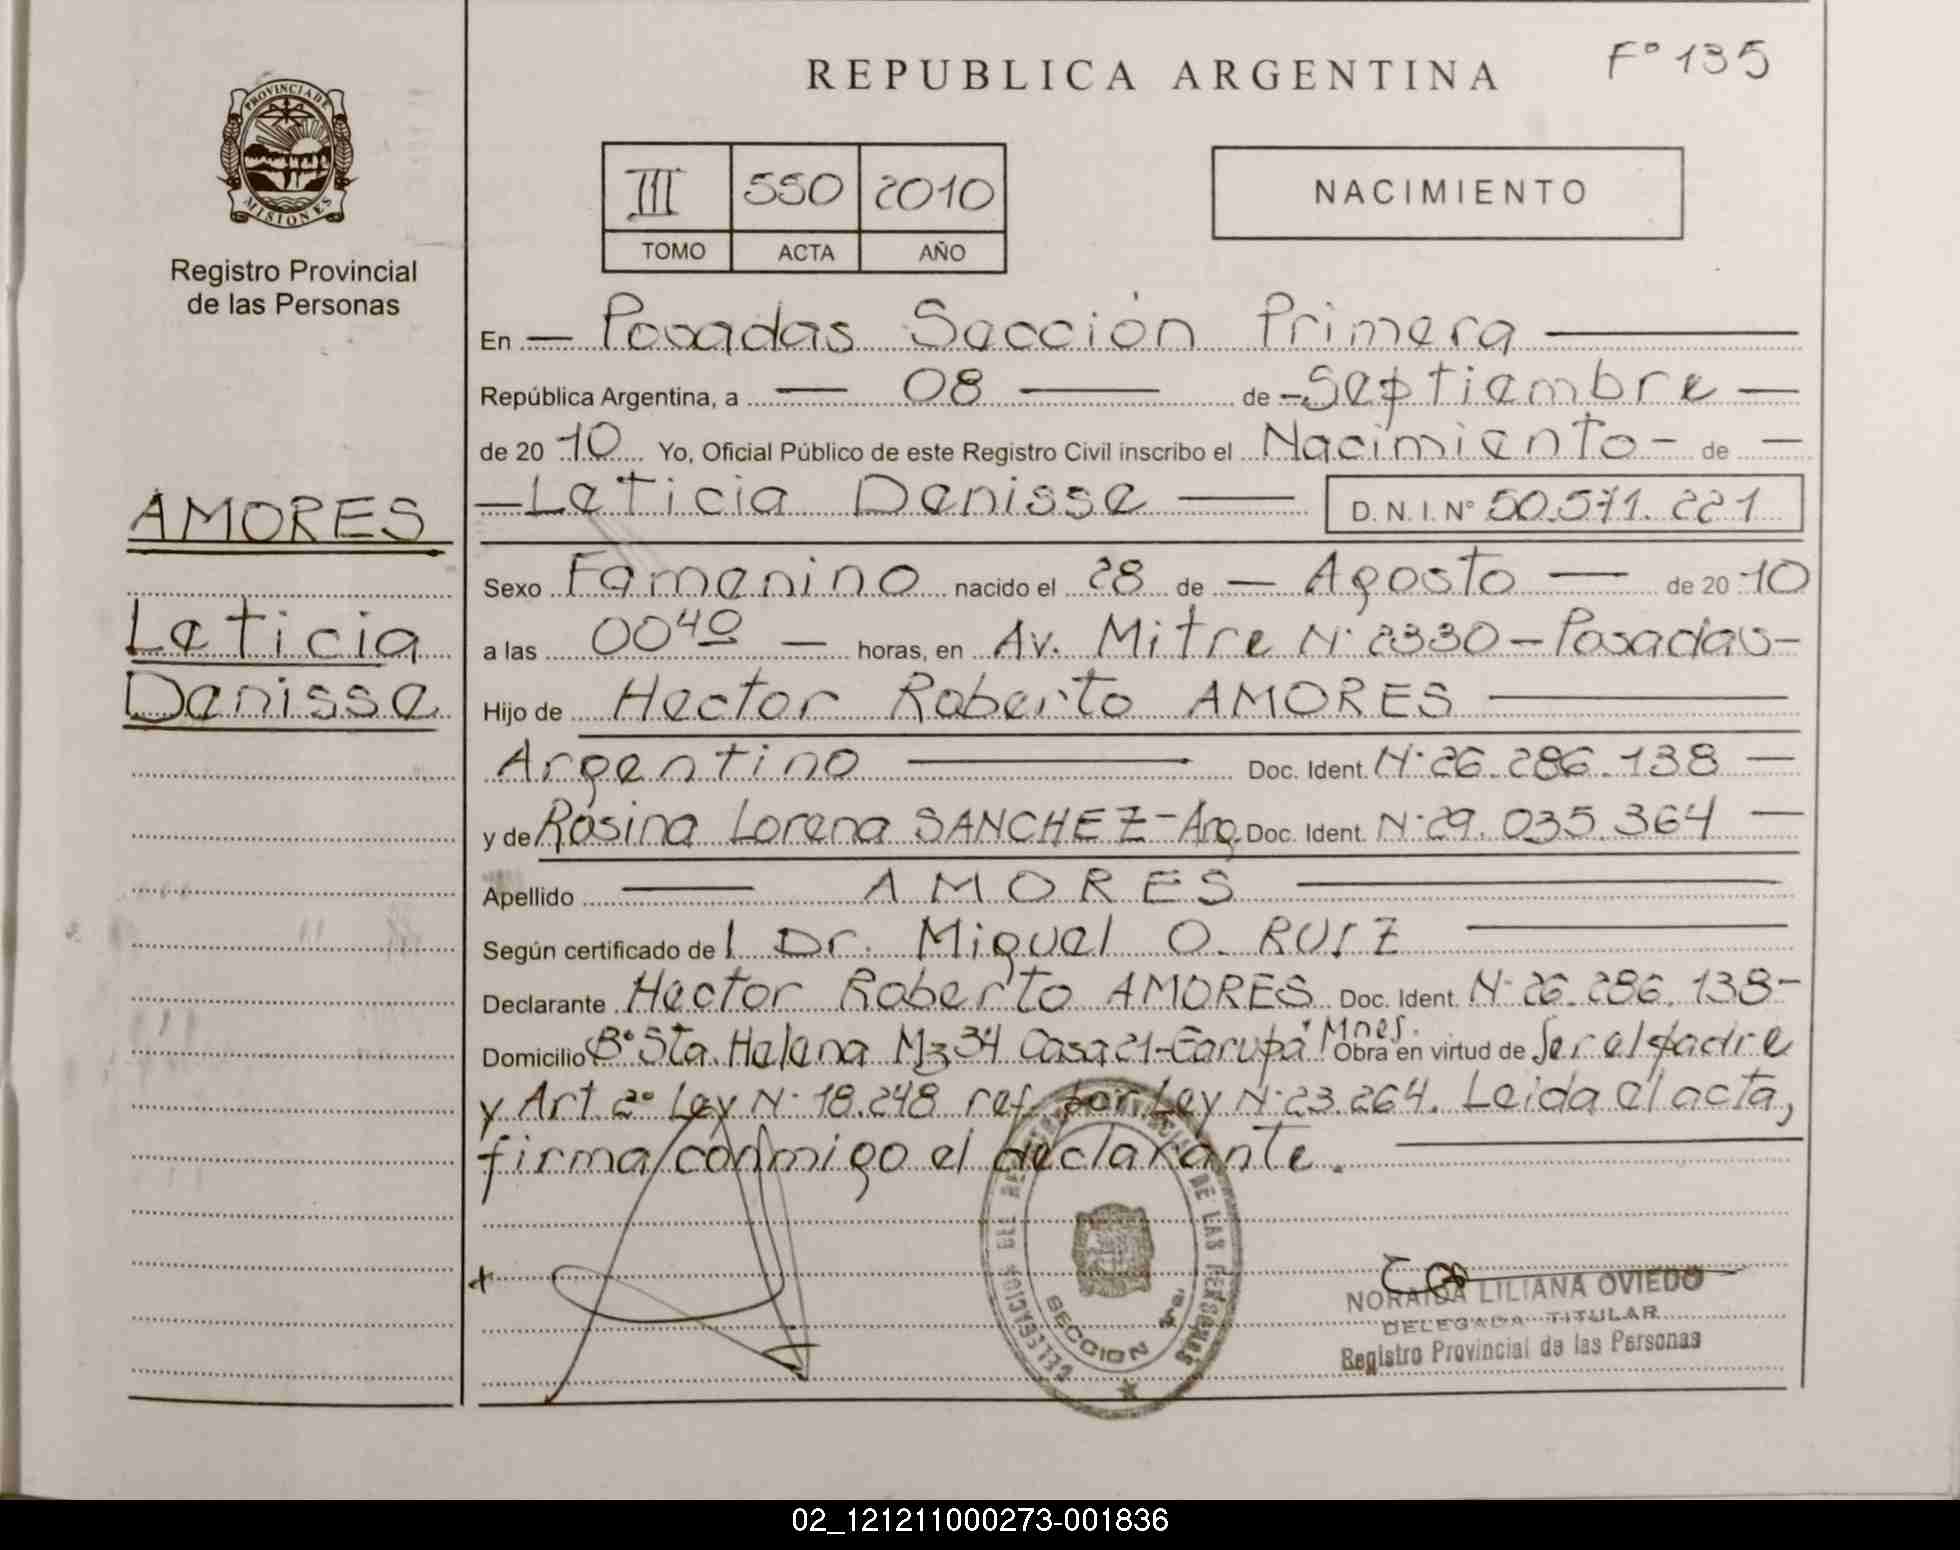 F° 135
REPUBLICA ARGENTINA
PROVINCIA DE MISIONES
Registro Provincial
de las Personas
III 550 2010
TOMO ACTA AÑO
NACIMIENTO
En — Posadas Sección Primera —
República Argentina, a — 08 — de — Septiembre —
de 20 10 Yo, Oficial Público de este Registro Civil inscribo el Nacimiento - de —
— Leticia Denisse — D. N. I. N° 50.571.221
AMORES
Leticia
Denisse
Sexo Femenino nacido el 28 de — Agosto — de 20 10
a las 00 40 — horas, en Av. Mitre N° 2330 - Posadas -
Hijo de Hector Roberto AMORES —
Argentino — Doc. Ident. N° 26.286.138 —
y de Rosina Lorena SANCHEZ - Arg. Doc. Ident. N° 29.035.364 —
Apellido — AMORES —
Según certificado de l Dr. Miguel O. RUIZ —
Declarante Hector Roberto AMORES Doc. Ident. N° 26.286.138 -
Domicilio B° Sta. Helena Mz 34 Casa 21 - Garupá Mnes. Obra en virtud de Ser el padre
y Art 2° Ley N° 18.248 ref. por Ley N° 23.264. Leida el acta,
firma conmigo el declarante. —
DELEGACION DEL REGISTRO PROVINCIAL DE LAS PERSONAS
SECCION 1ra.
NORAIDA LILIANA OVIEDO
DELEGADA TITULAR
Registro Provincial de las Personas
02_121211000273-001836